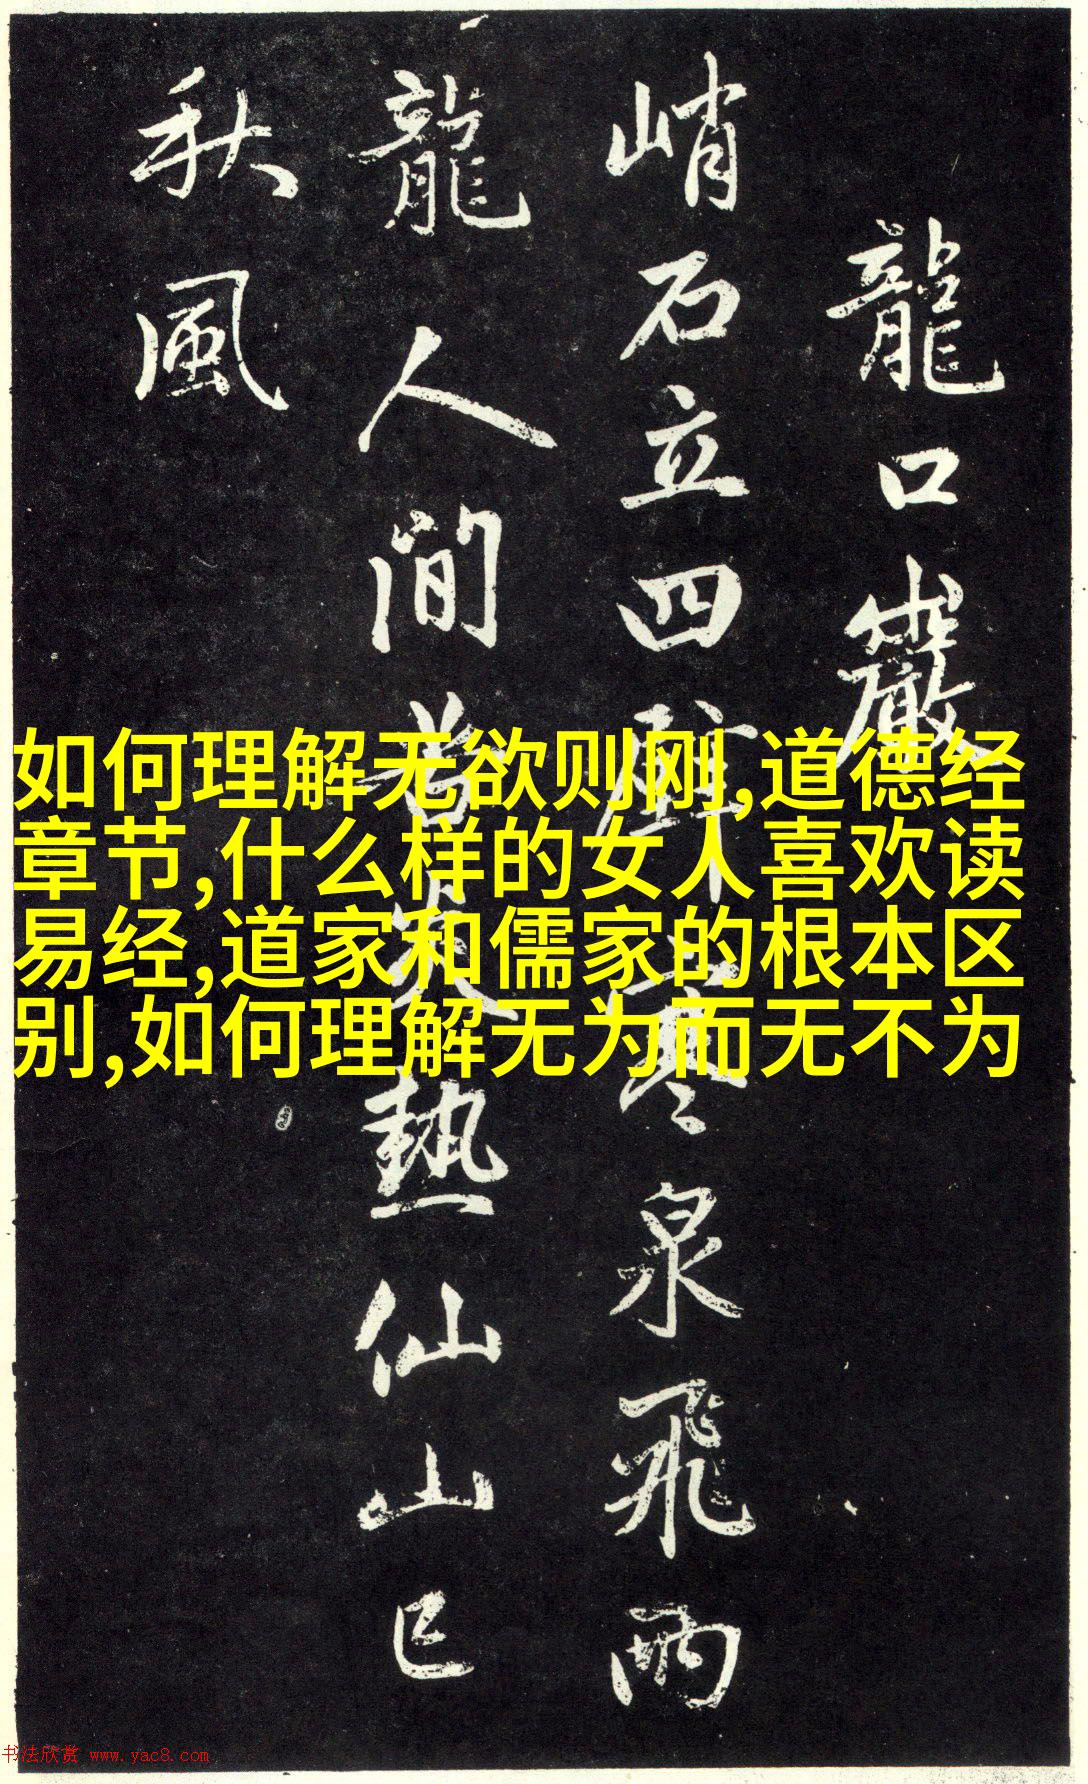 龍口巖
峭石立四壁寒泉飛雨
龍人間苦炎熱仙山已
秋風
如何理解无欲则刚,道德经
章节,什么样的女人喜欢读
易经,道家和儒家的根本区
别,如何理解无为而无不为
书法欣赏 www.yac8.com